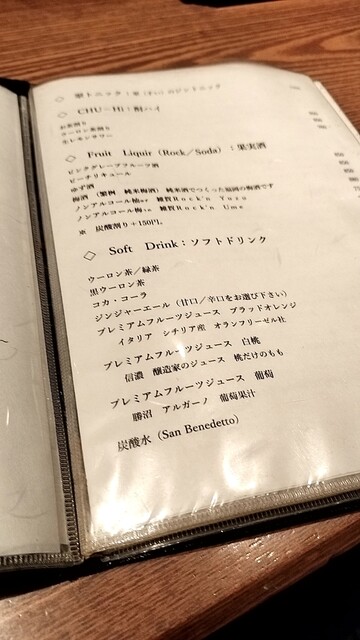 ◇ CHU-Hi：酎ハイ
お茶割り
ウーロン茶割り
生レモンサワー
◇ Fruit Liquir（Rock／Soda）：果実酒
ピンクグレープフルーツ酒
ピーチリキュール
ゆず酒
梅酒 （繁桝 純米梅酒）純米酒でつくった福岡の梅酒です
ノンアルコール柚or 雑賀Rock'n Yuzu
ノンアルコール梅or 雑賀Rock'n Ume
※ 炭酸割り＋150円。
◇ Soft Drink：ソフトドリンク
ウーロン茶／緑茶
黒ウーロン茶
コカ・コーラ
ジンジャーエール（甘口／辛口をお選び下さい）
プレミアムフルーツジュース ブラッドオレンジ
イタリア シチリア産 オランフリーゼル社
プレミアムフルーツジュース 白桃
信濃 醸造家のジュース 桃だけのもも
プレミアムフルーツジュース 葡萄
勝沼 アルガーノ 葡萄果汁
炭酸水（San Benedetto）